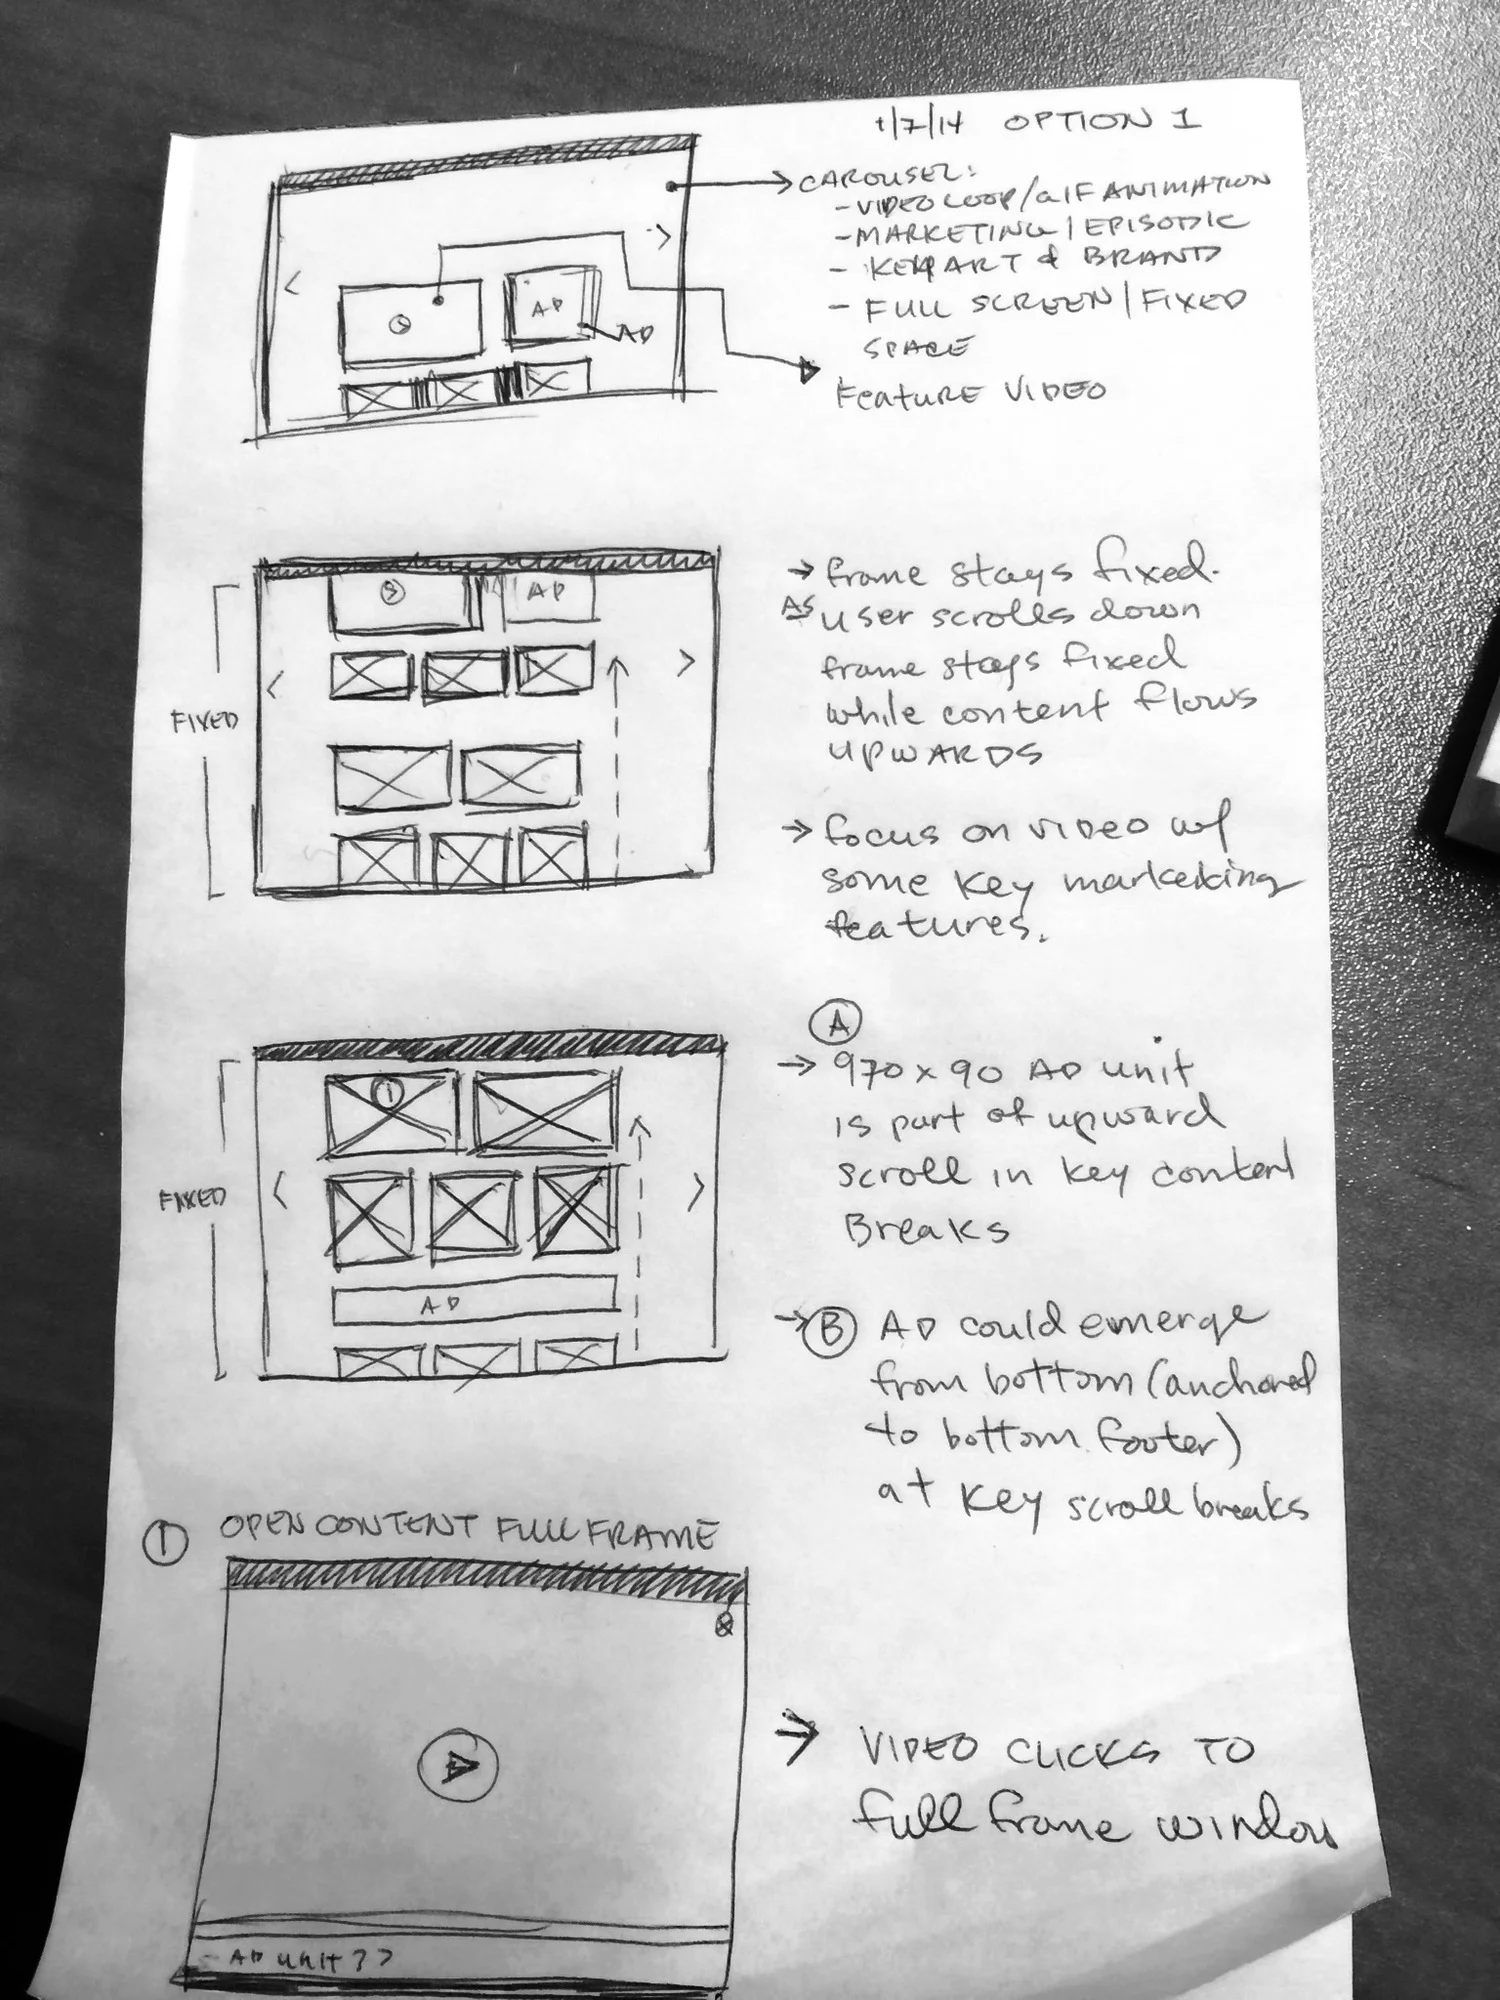 1/7/14 OPTION 1
CAROUSEL:
- VIDEO LOOP/GIF ANIMATION
- MARKETING/EPISODIC
- KEY ART & BRAND
- FULL SCREEN/FIXED
SPACE
Feature VIDEO
AD
AD
→ frame stays fixed.
AS user scrolls down
frame stays fixed
while content flows
UPWARDS
→ focus on video w/
some key marketing
features.
AD
FIXED
A
→ 970x90 AD unit
is part of upward
scroll in key content
Breaks
→ B AD could emerge
from bottom (anchored
to bottom footer)
at key scroll breaks
1
FIXED
AD
1 OPEN CONTENT FULL FRAME
→ VIDEO CLICKS TO
full frame window
- AD unit??